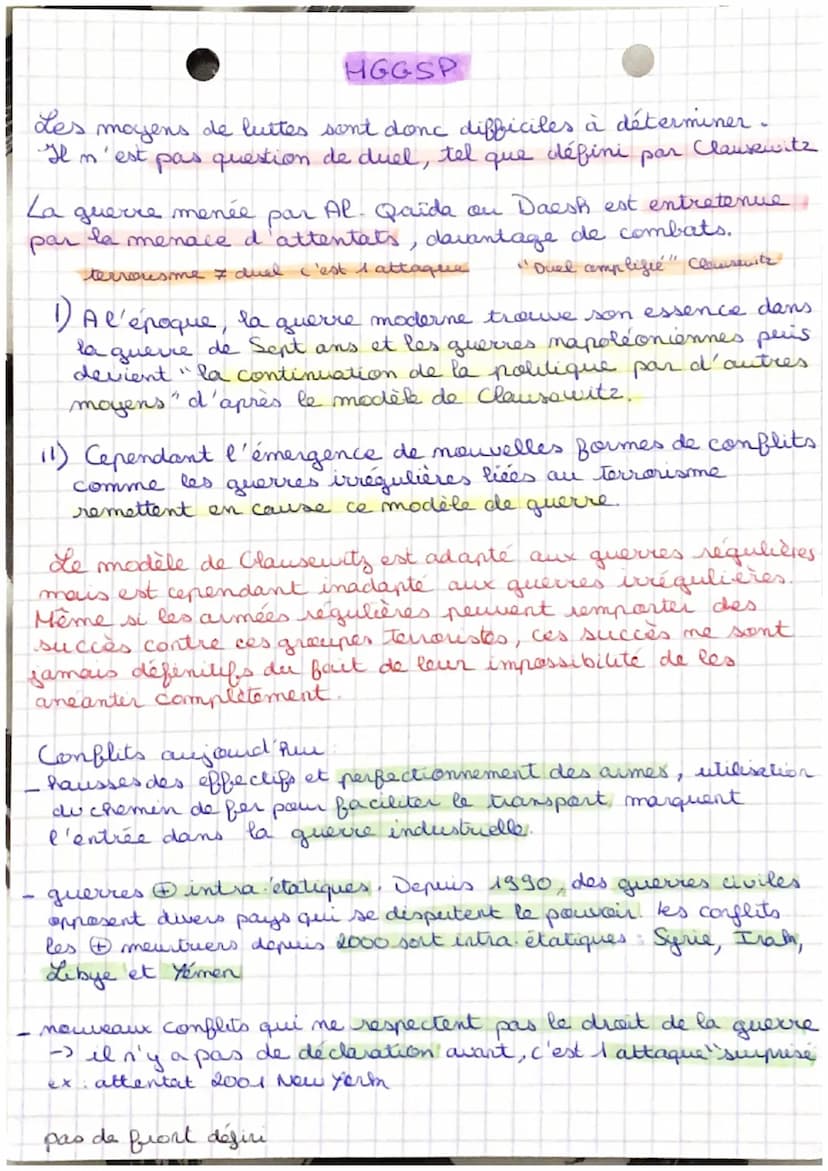 HGGSP
Les moyens de luttes sont donc difficiles à déterminer.
Il n'est pas question de duel, tel que défini par Clausewitz
La guerre menée par Al-Qaïda ou Daesh est entretenue
par la menace d'attentats, davantage de combats.
terrorisme ≠ duel c'est 1 attaque "Duel amplifié" Clausewitz
I) A l'époque, la guerre moderne trouve son essence dans
la guerre de Sept ans et les guerres napoléoniennes puis
devient "la continuation de la politique par d'autres
moyens" d'après le modèle de Clausewitz.
II) Cependant l'émergence de nouvelles formes de conflits
comme les guerres irrégulières liées au terrorisme
remettent en cause ce modèle de guerre.
Le modèle de Clausewitz est adapté aux guerres régulières
mais est cependant inadapté aux guerres irrégulières.
Même si les armées régulières peuvent remporter des
succès contre ces groupes terroristes, ces succès ne sont
jamais définitifs du fait de leur impossibilité de les
anéantir complètement.
Conflits aujourd'hui
- hausses des effectifs et perfectionnement des armes, utilisation
du chemin de fer pour faciliter le transport, marquent
l'entrée dans la guerre industrielle.
- guerres ⊕ intra-étatiques. Depuis 1990, des guerres civiles
opposent divers pays qui se disputent le pouvoir. les conflits
les ⊕ meurtriers depuis 2000 sont intra-étatiques : Syrie, Irak,
Libye et Yémen
- nouveaux conflits qui ne respectent pas le droit de la guerre
-> il n'y a pas de déclaration avant, c'est 1 attaque "surprise"
ex : attentat 2001 New York
pas de front défini